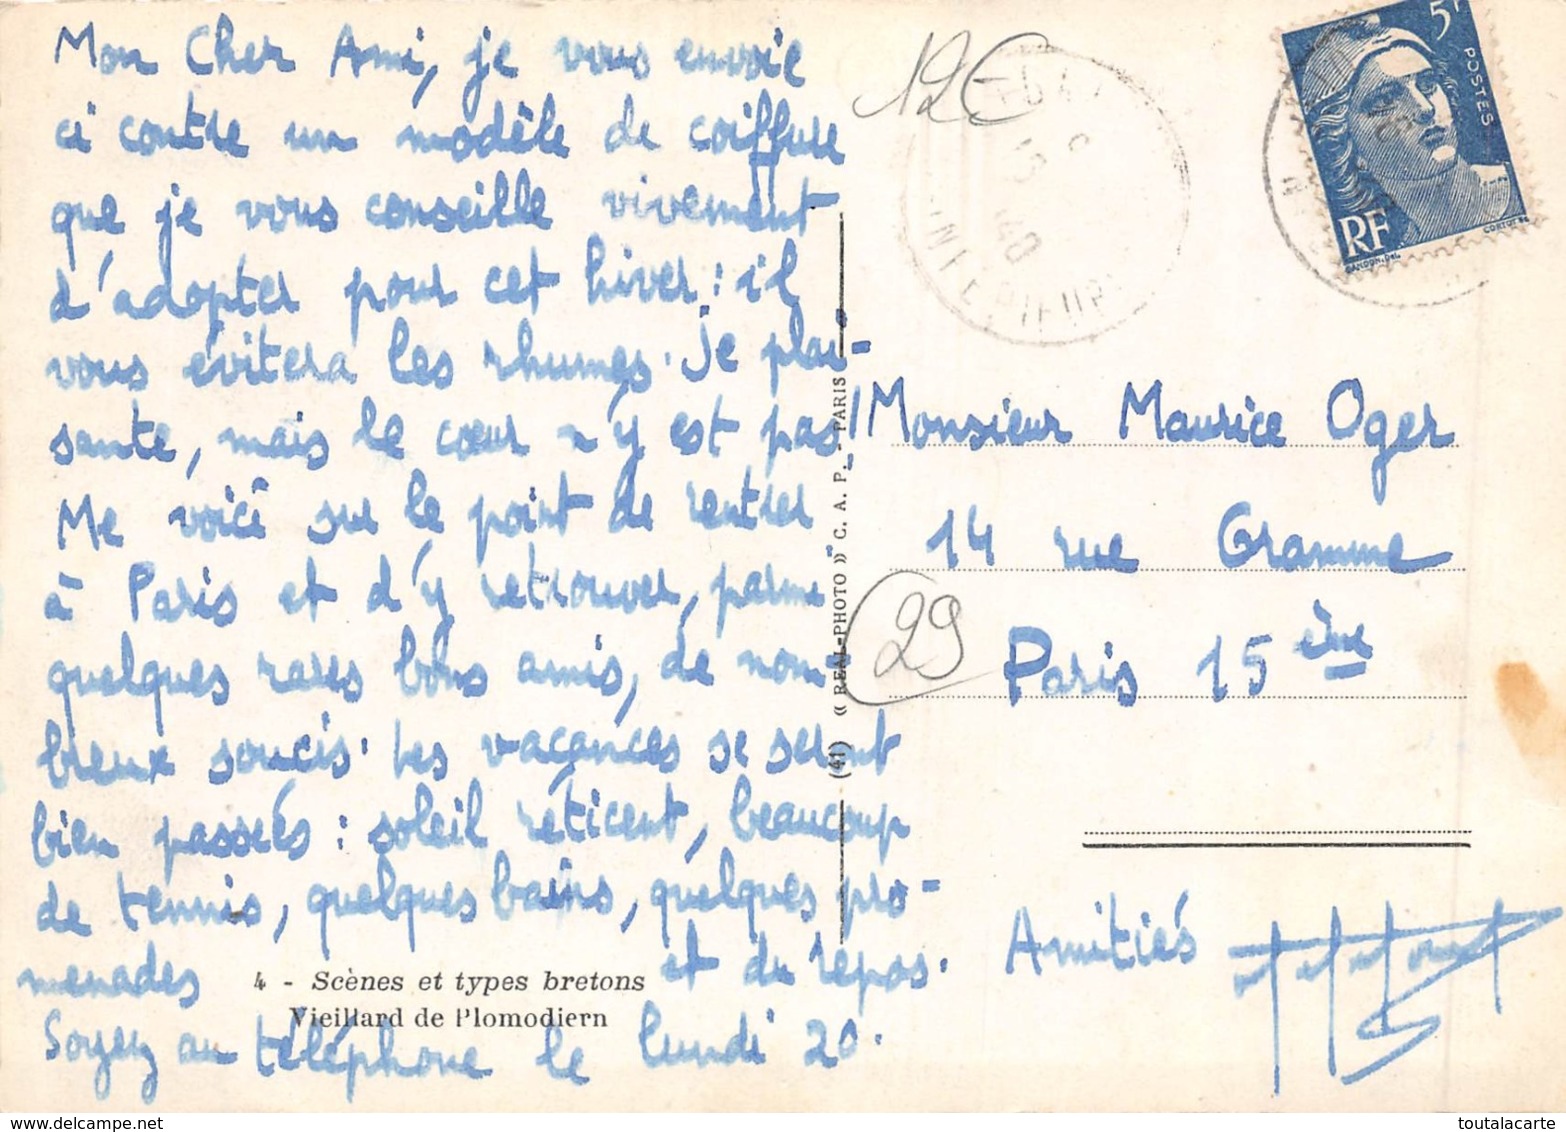 Mon Cher Ami, je vous envoie
ci contre un modèle de coiffure
que je vous conseille vivement
d'adopter pour cet hiver : il
vous évitera les rhumes. Je plai-
sante, mais le cœur n'y est pas !
Me voici sur le point de rentrer
à Paris et d'y retrouver, parmi
quelques rares bons amis, de nom-
breux soucis. Les vacances se seront
bien passées : soleil réticent, beaucoup
de tennis, quelques bains, quelques pro-
menades et du repos.
Soyez au téléphone le lundi 20.
4 - Scènes et types bretons
Vieillard de Plomodiern
(41) « REAL-PHOTO » C. A. P. - PARIS
12€
29
5F
POSTES
RF
GANDON-DEL
Monsieur Maurice Oger
14 rue Gramme
Paris 15 ème
Amitiés
toutalacarte